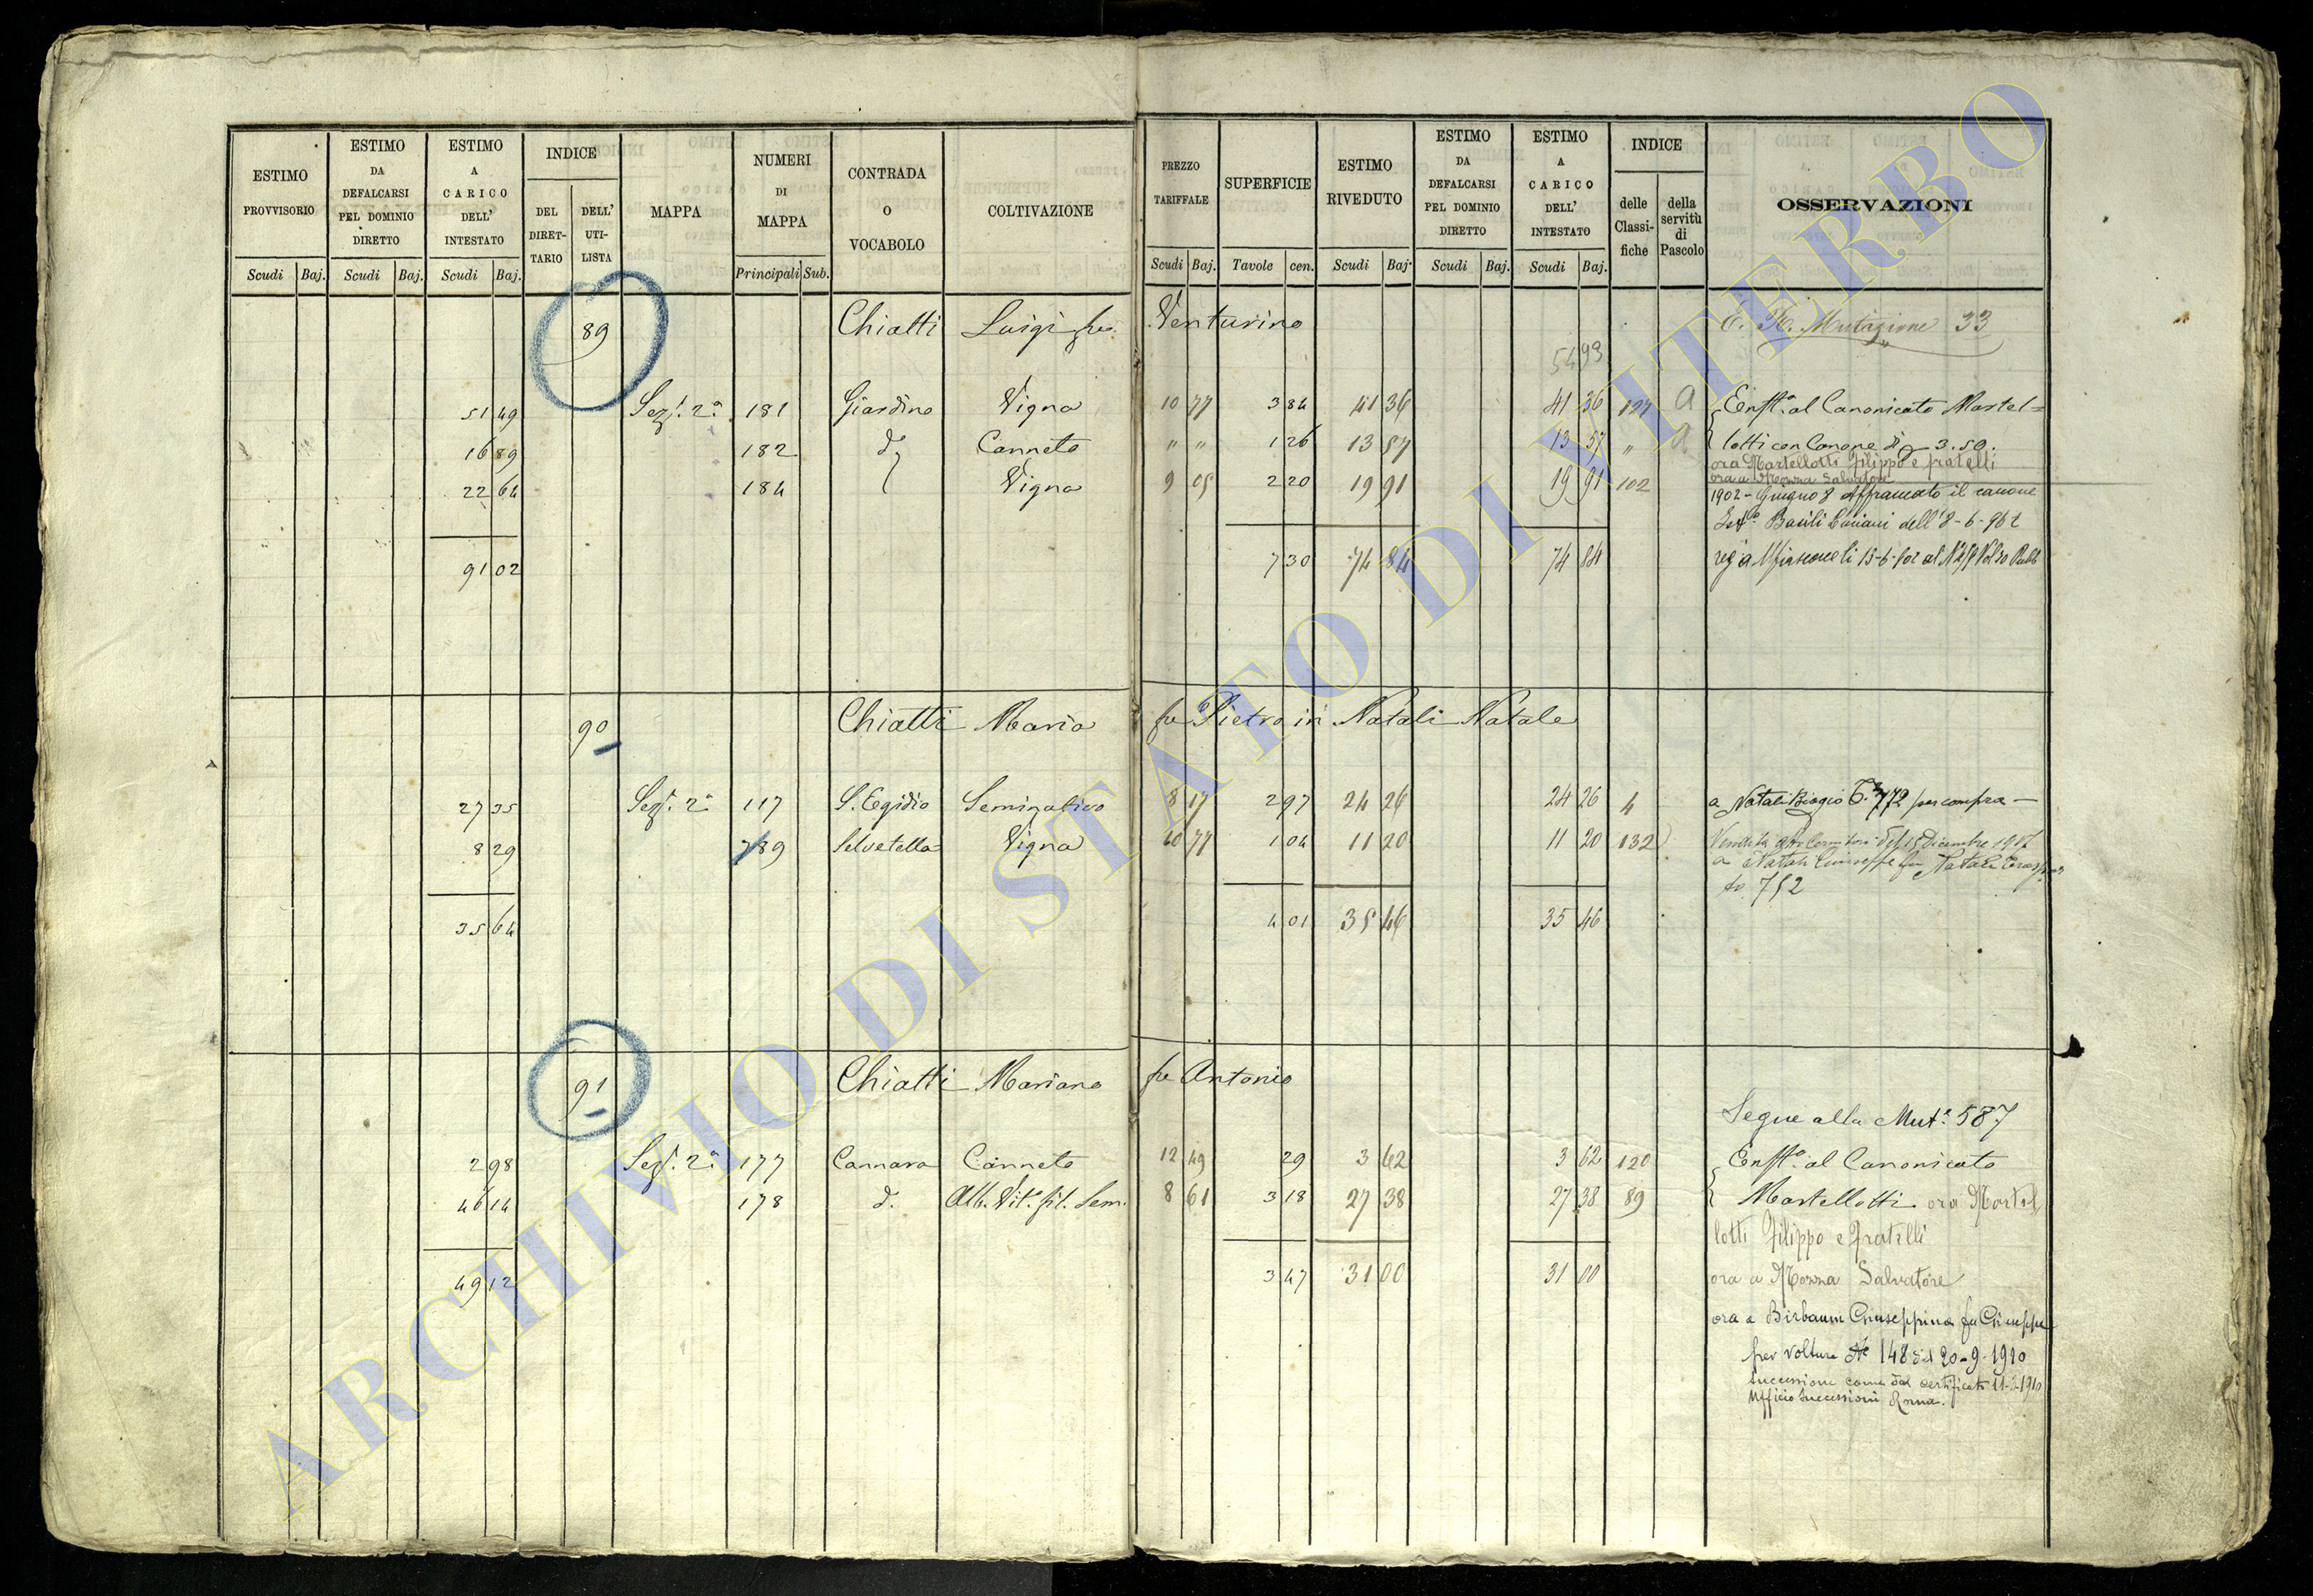 ESTIMO PROVVISORIO Scudi Baj.
ESTIMO DA DEFALCARSI PEL DOMINIO DIRETTO Scudi Baj.
ESTIMO A CARICO DELL' INTESTATO Scudi Baj.
INDICE DEL DIRETTARIO DELL' UTILISTA
MAPPA
NUMERI DI MAPPA Principali Sub.
CONTRADA O VOCABOLO
COLTIVAZIONE
PREZZO TARIFFALE Scudi Baj.
SUPERFICIE Tavole cen.
ESTIMO RIVEDUTO Scudi Baj.
ESTIMO DA DEFALCARSI PEL DOMINIO DIRETTO Scudi Baj.
ESTIMO A CARICO DELL' INTESTATO Scudi Baj.
INDICE delle Classifiche della servitù di Pascolo
OSSERVAZIONI
89 Chiatti Luigi fu Venturino Mutazione 33
54 93
51 49 Sez. 2a 181 Giardino Vigna 10 77 3 84 41 36 41 36 127 a Enft.a al Canonicato Martel=
16 89 182 d. Canneto " " 1 26 13 57 13 57 " a lotti con Canone di 3.50.
ora Martellotti Filippo e fratelli
ora a Monna Salvatore
22 64 184 Vigna 9 05 2 20 19 91 19 91 102 1902 - Giugno 8 Affrancato il canone
dell' 8-6-902
91 02 7 30 74 84 74 84
90 Chiatti Maria fu Pietro in Natali Natale
27 35 Sez. 2a 117 S. Egidio Seminativo 8 17 2 97 24 26 24 26 4 a Natali Biagio 772 per compra -
8 29 789 Selvetella Vigna 10 77 1 04 11 20 11 20 132 Dicembre 1917
a Natali Giuseppe fu Natale
752
35 64 4 01 35 46 35 46
91 Chiatti Mariano fu Antonio
Segue alla Mut.e 587
2 98 Sez. 2a 177 Cannara Canneto 12 49 29 3 62 3 62 120 Enft.a al Canonicato
46 14 178 d. Alb. Vit. fil. Sem. 8 61 3 18 27 38 27 38 89 Martellotti ora Martel
lotti Filippo e fratelli
49 12 3 47 31 00 31 00 ora a Monna Salvatore
ora a Birbaum Giuseppina fu Giuseppe
per voltura No 148 del 20-9-1910
successione come dal certificato 1910
Ufficio Successioni Roma.
ARCHIVIO DI STATO DI VITERBO